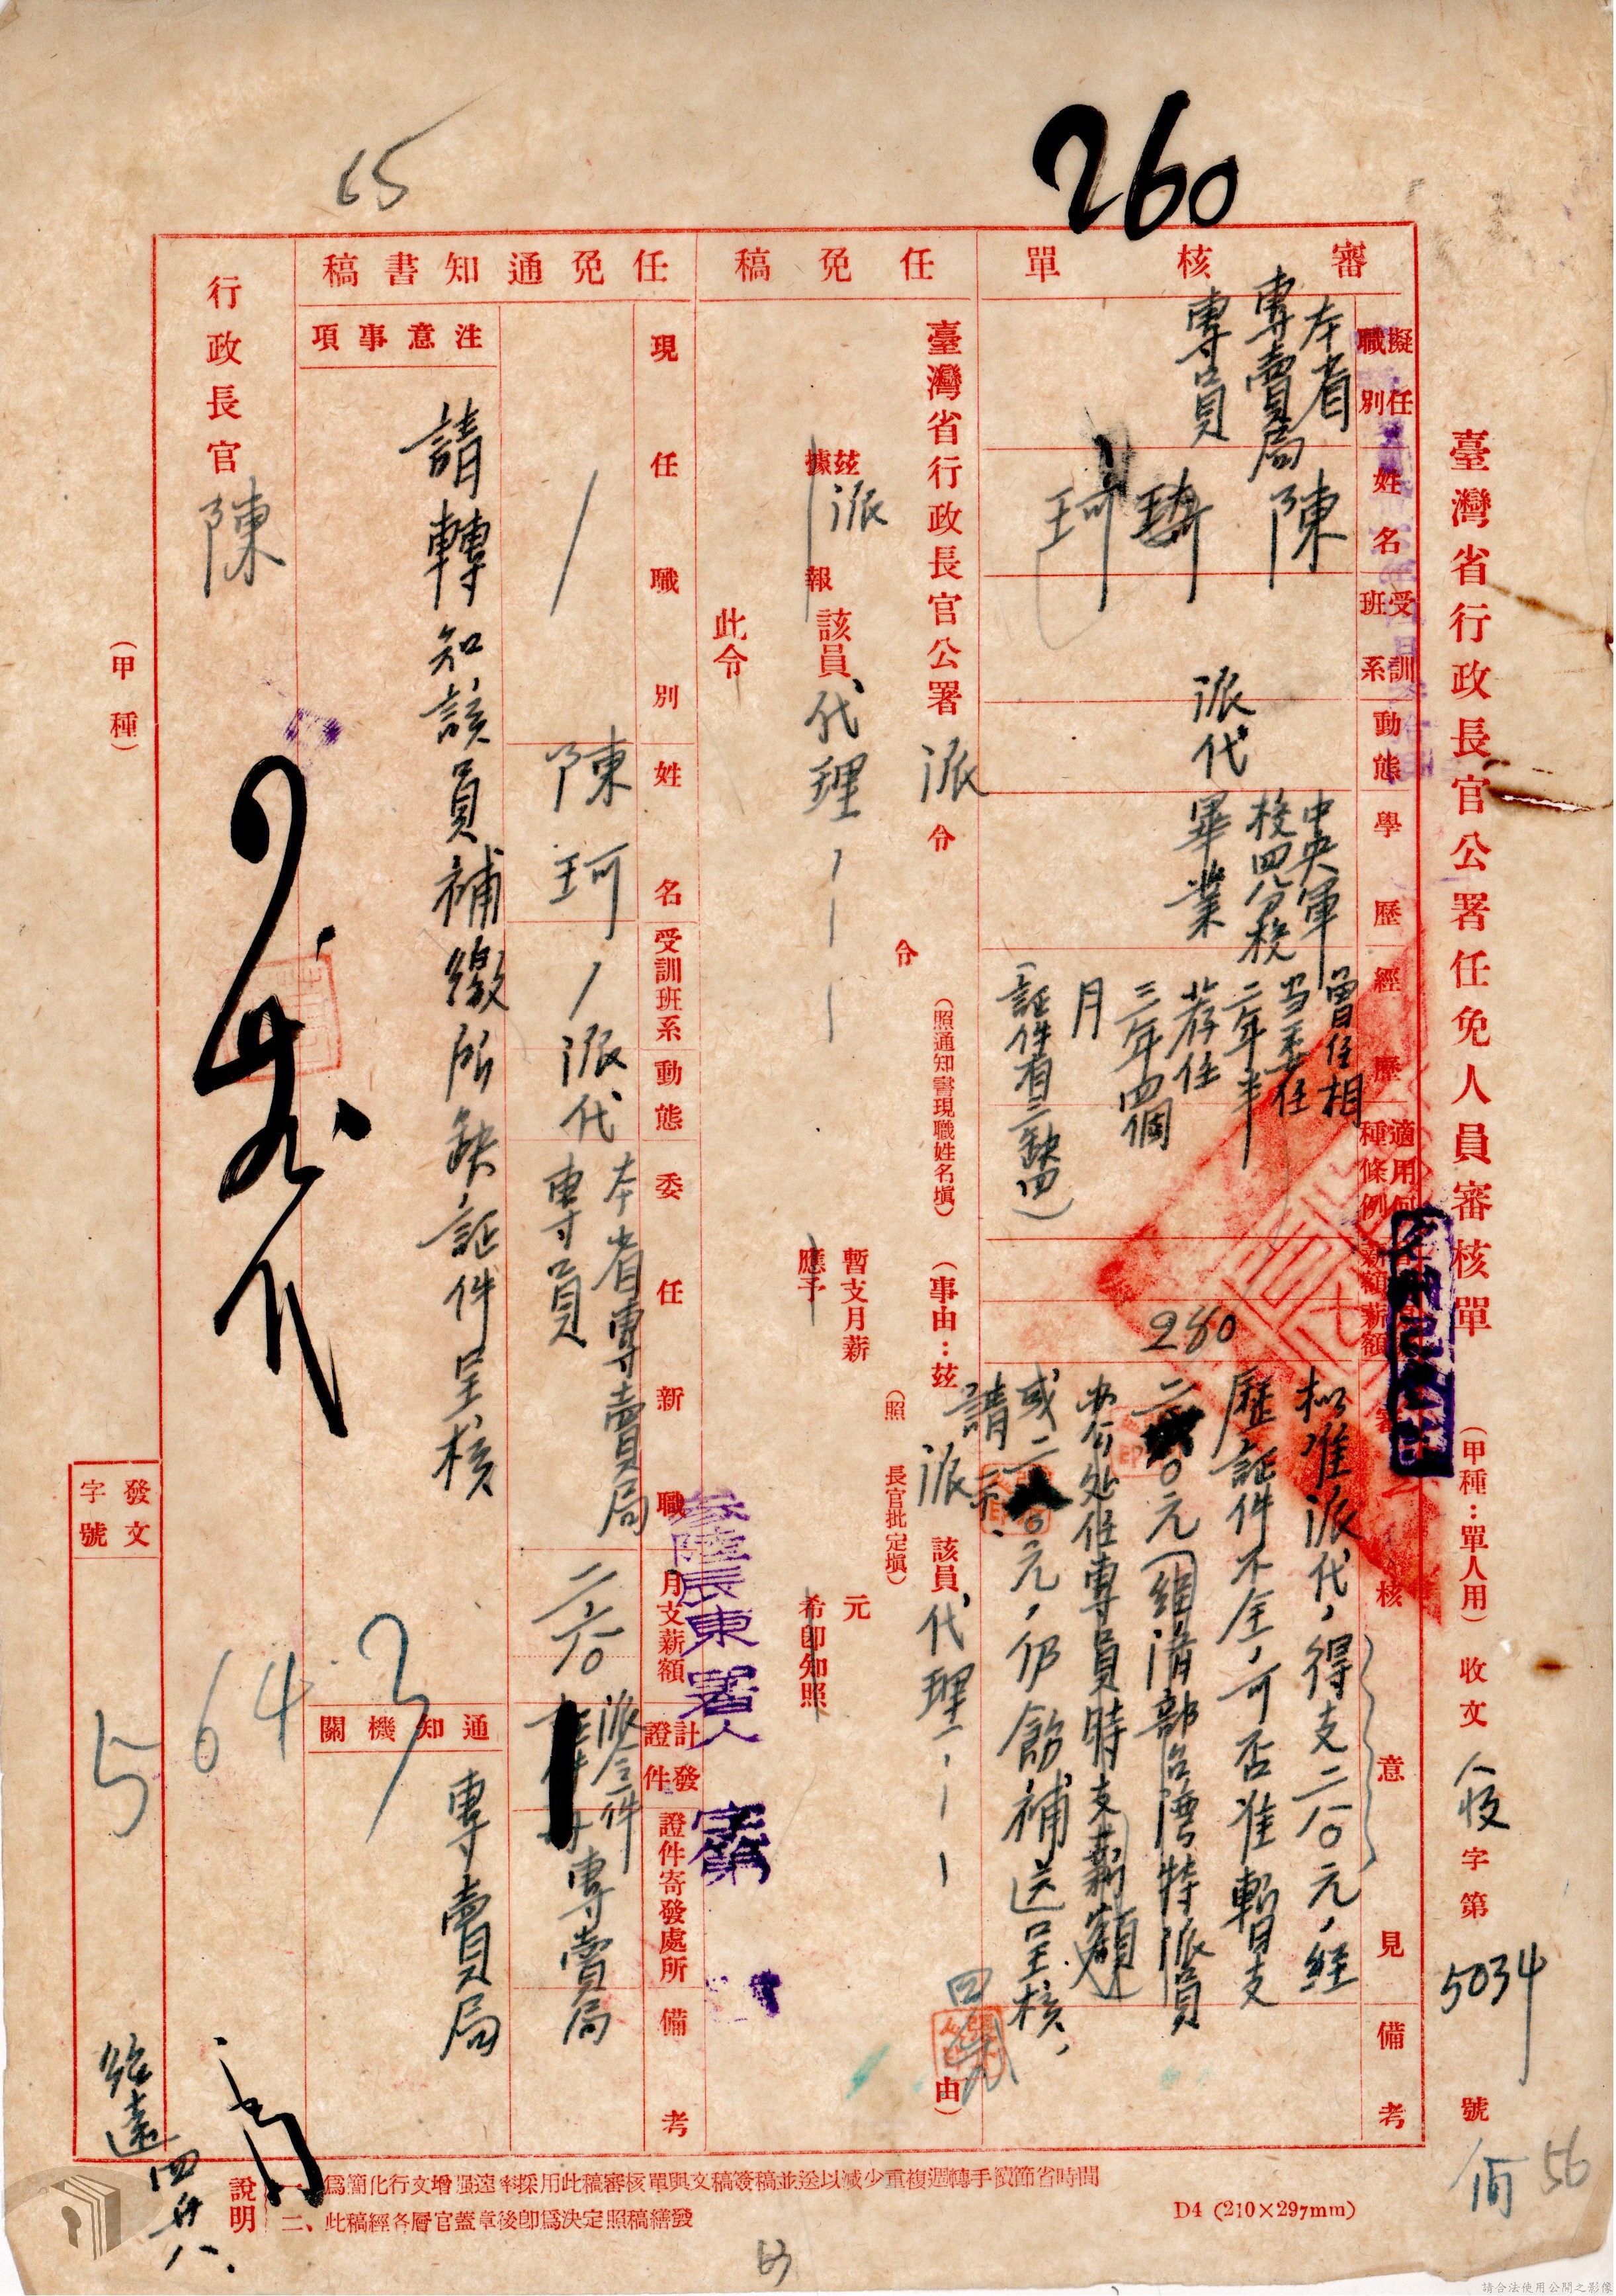 260
65
臺灣省行政長官公署任免人員審核單
（甲種：單人用）
收文
人收
字第
5034
號
56
審核單
擬任職別
姓名
受訓班系
動態
學歷
經歷
適用何種條例
薪額
薪額
審核意見
備考
本省
專賣局
專員
陳
珂
派代
中央軍
校四分校
畢業
曾任相
当委任
二年半
荐任
三年四個
月
（証件有三缺四）
280
拟准派代，得支二八〇元，經
歷証件不全，可否准暫支
二
〇元（組清部台灣特派員
办公处任專員時支薪額）
或二
〇元，仍飭補送呈核，
請示。
任免稿
臺灣省行政長官公署
派
令
令
（照通知書現職姓名塡）
（事由：玆
派
該員
代理
由）
玆
據
派
報
該員
代理
暫支月薪
元
應予
（照
長官批定塡）
希卽知照
此令
任免通知書稿
現任職別
姓名
受訓班系
動態
委任新職
月支薪額
計發證件
證件寄發處所
備考
陳珂
派代
本省專賣局
專員
二六〇
派令一件
專賣局
注意事項
請轉知該員補繳所缺証件呈核
通知機關
專賣局
參陸辰東署人
字第
行政長官
陳
（甲種）
發文
字號
5643
四廿八.
說明
一、爲簡化行文增强速率採用此稿審核單與文稿簽稿並送以減少重複週轉手續節省時間
二、此稿經各層官蓋章後卽爲決定照稿繕發
D4（210×297mm）
63
請合法使用公開之影像